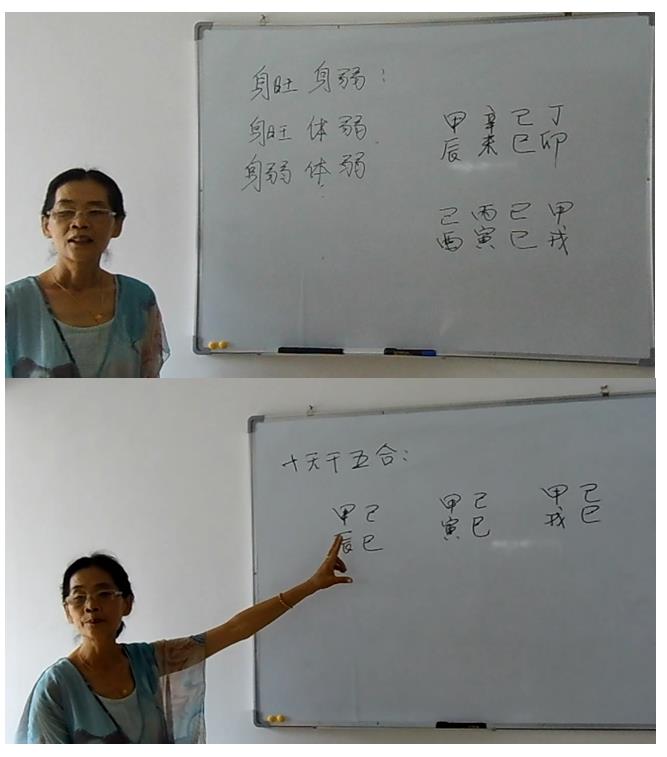 身旺 身弱：
身旺 体弱
身弱 体弱
甲 辛 己 丁
辰 未 巳 卯
己 丙 己 甲
酉 寅 巳 戌
十天干五合：
甲己 甲己 甲己
辰巳 寅巳 戌巳